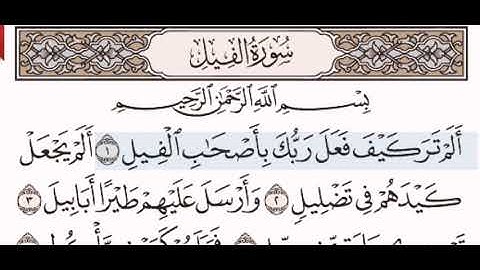 سُورَةُ الْفِيلِ
بِسْمِ اللَّهِ الرَّحْمَٰنِ الرَّحِيمِ
أَلَمْ تَرَ كَيْفَ فَعَلَ رَبُّكَ بِأَصْحَابِ الْفِيلِ ١ أَلَمْ يَجْعَلْ
كَيْدَهُمْ فِي تَضْلِيلٍ ٢ وَأَرْسَلَ عَلَيْهِمْ طَيْرًا أَبَابِيلَ ٣